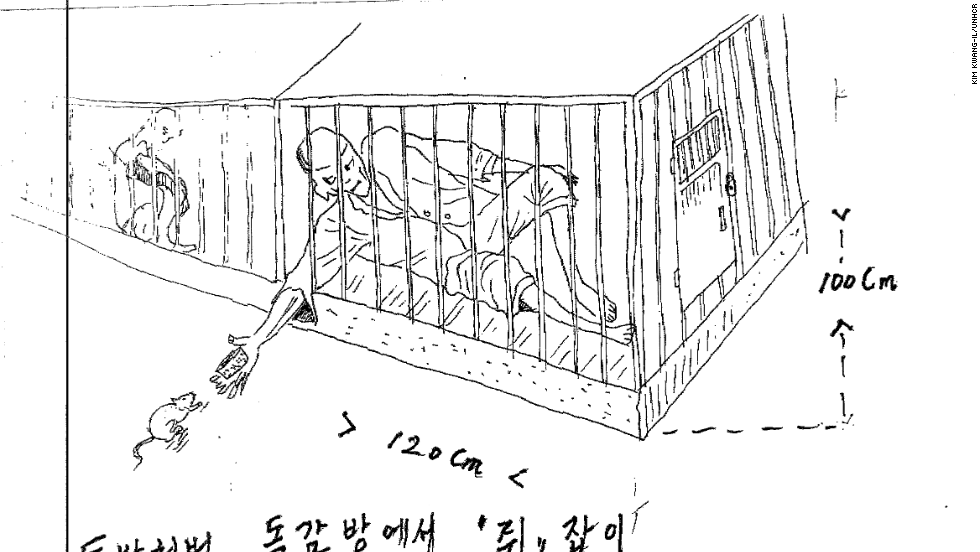 KIM KWANG-IL/UNHCR
100 Cm
120 Cm
독감방에서 "쥐" 잡이